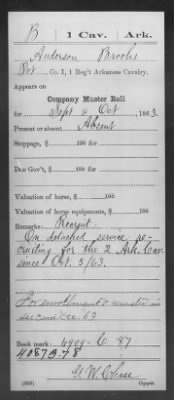 B | 1 Cav. | Ark.
Anderson Brooks
Pvt., Co. I, 1 Reg't Arkansas Cavalry.
Appears on
Company Muster Roll
for Sept & Oct, 1863.
Present or absent Absent
Stoppage, $ 100 for
Due Gov't, $ 100 for
Valuation of horse, $ 100
Valuation of horse equipments, $ 100
Remarks: Recruit.
On detached service re-
cruiting for the 2 Ark. Cav.
since Oct. 5/63.
For enrollment & muster in
see
Book mark: 87
40873.78
G. W. Chase
(358) Copyist.